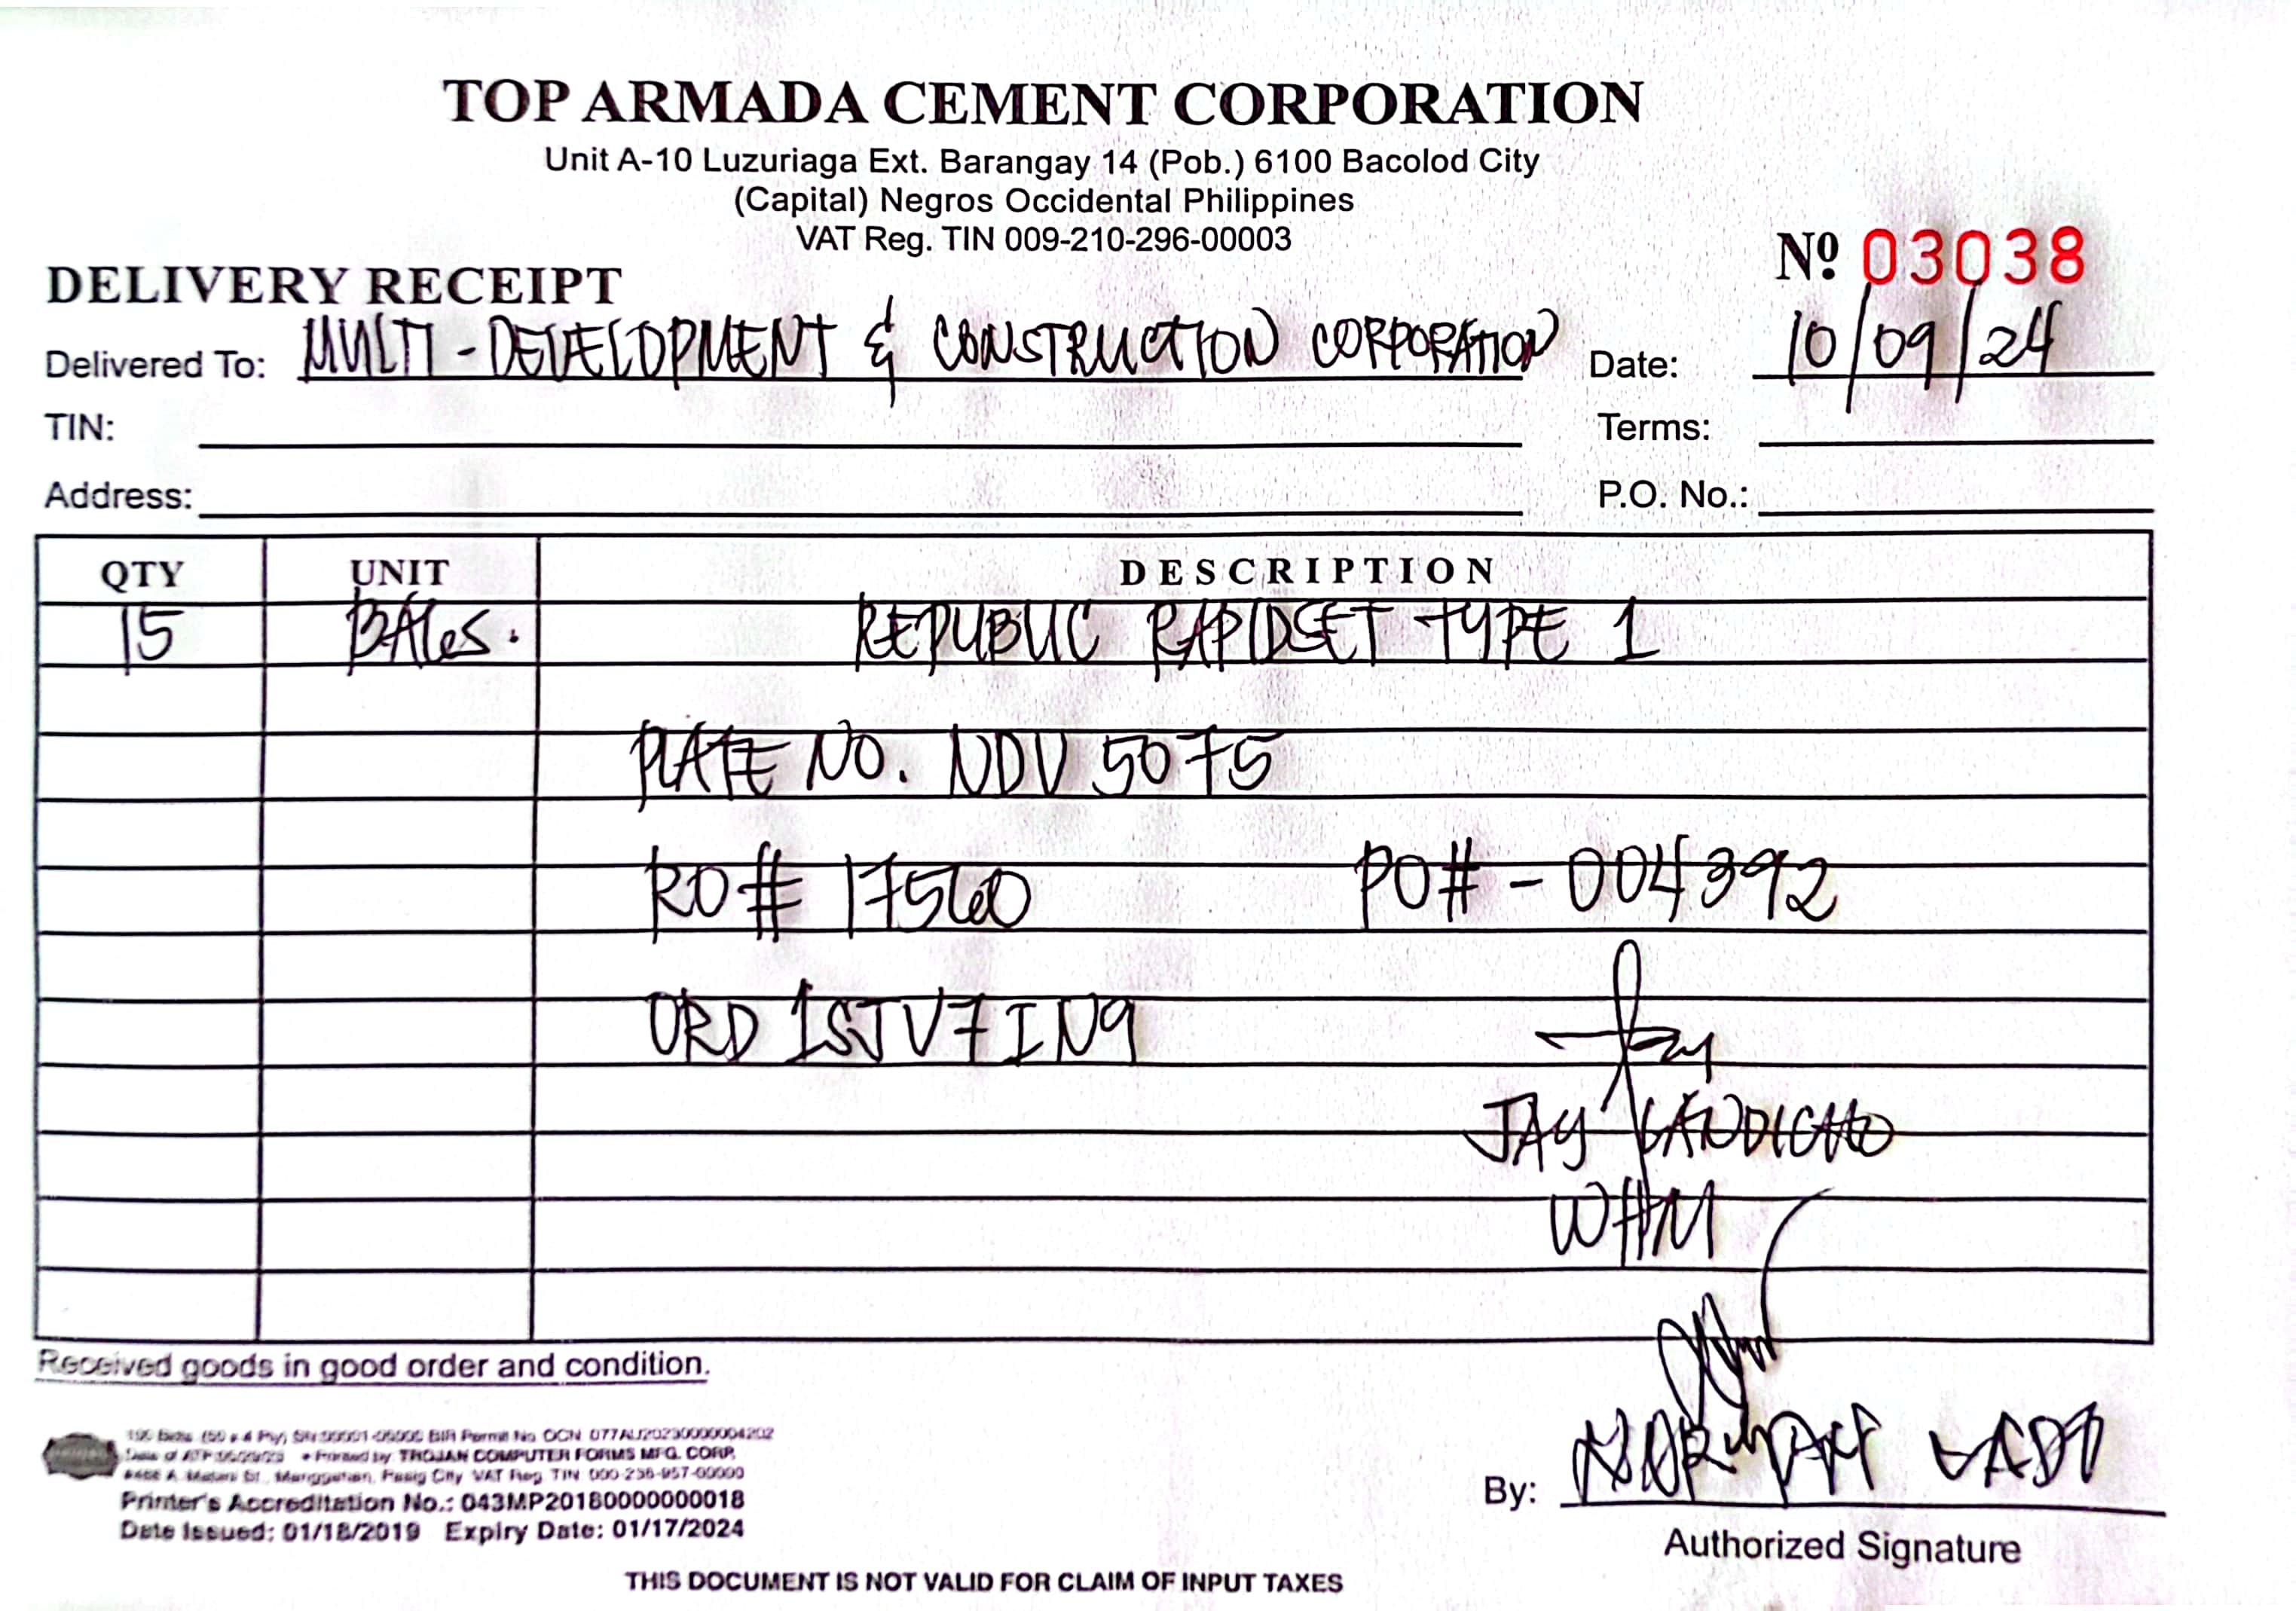 TOP ARMADA CEMENT CORPORATION
Unit A-10 Luzuriaga Ext. Barangay 14 (Pob.) 6100 Bacolod City
(Capital) Negros Occidental Philippines
VAT Reg. TIN 009-210-296-00003
Nº 03038
DELIVERY RECEIPT
Delivered To: MULTI-DEVELOPMENT & CONSTRUCTION CORPORATION Date: 10/09/24
TIN: Terms:
Address: P.O. No.:
QTY UNIT DESCRIPTION
15 BALES. REPUBLIC RAPIDSET TYPE 1
PLATE NO. NDV 5075
RO# 17560 PO# - 004392
ORD 1SJV7IN9
JAY LANDICHO
WHM
Received goods in good order and condition.
BIR Permit No OCN
Printed by: TROJAN COMPUTER FORMS MFG. CORP.
Pasig City VAT Reg TIN
Printer's Accreditation No.: 043MP20180000000018
Date Issued: 01/18/2019 Expiry Date: 01/17/2024
By:
Authorized Signature
THIS DOCUMENT IS NOT VALID FOR CLAIM OF INPUT TAXES